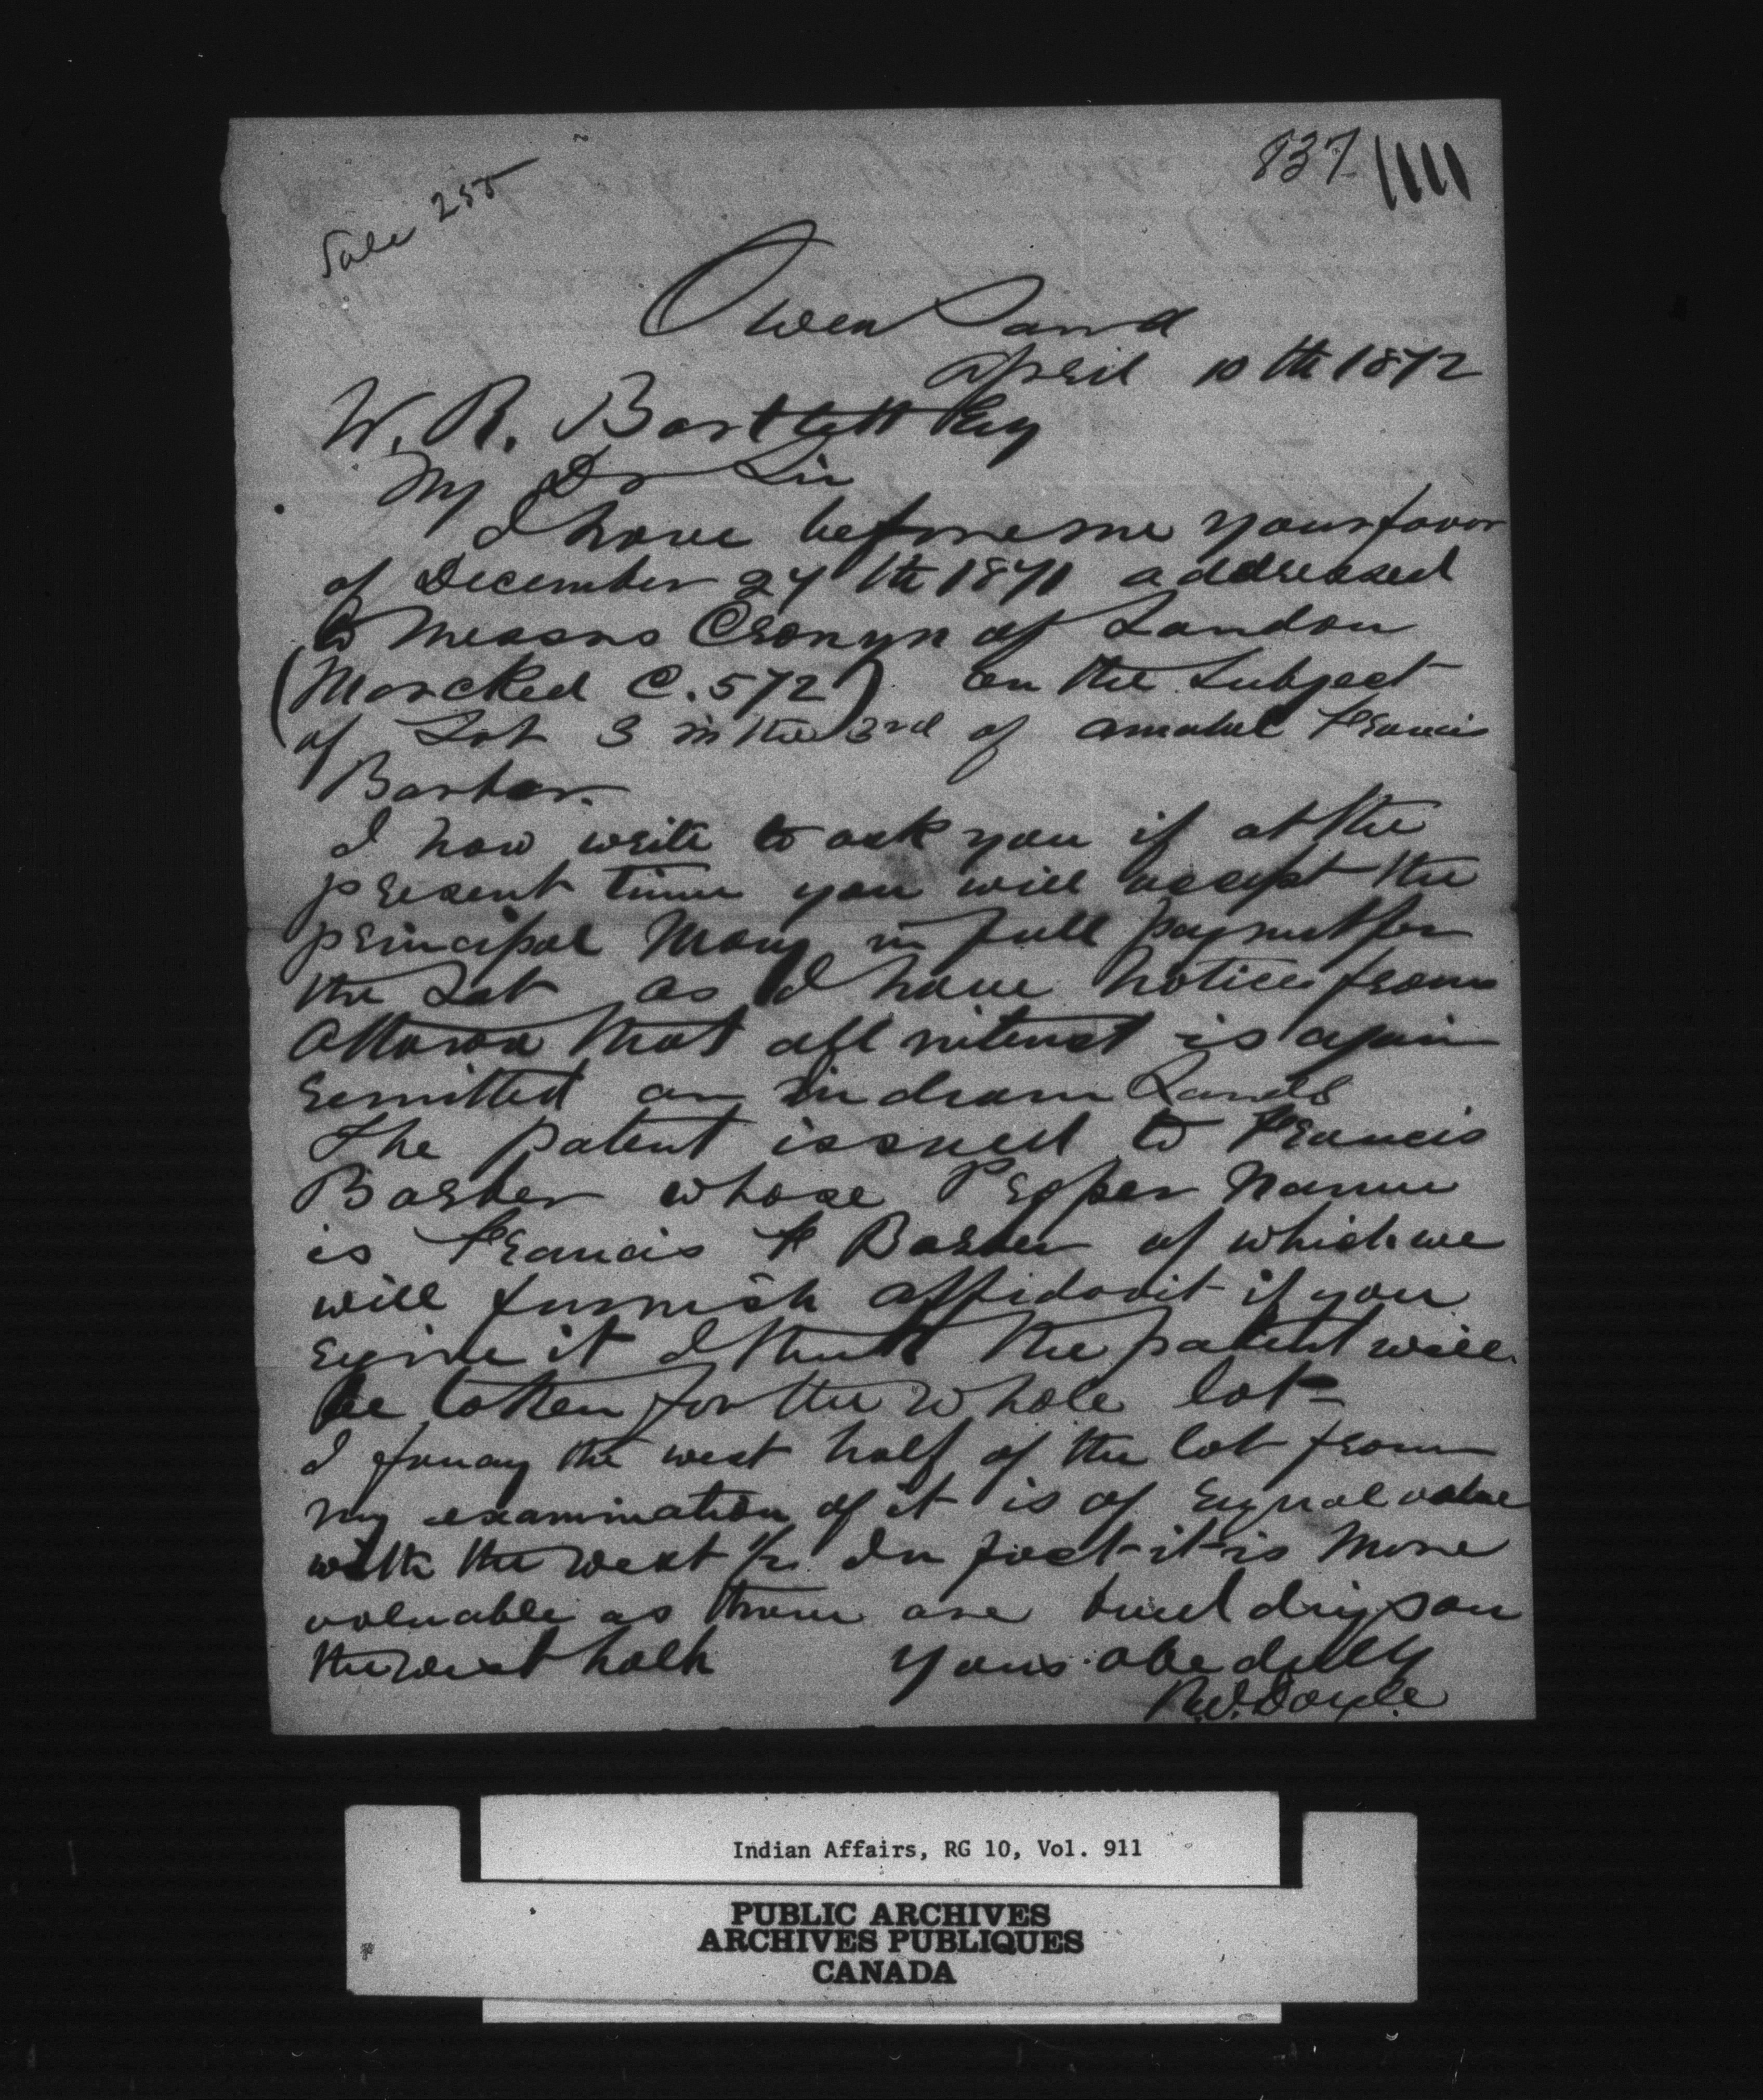 837
Sale 255
Owen Sound
April 10th 1872
W. R. Bartlett Esq
My Dr Sir
I have before me your favor
of December 27th 1871 addressed
to Messrs Cronyn of London
(Marcked C. 572) on the Subject
of Lot 3 in the 3rd of Amabel Francis
Barber.
I now write to ask you if at the
present time you will accept the
principal Mony in full payment for
the Lot as I have notice from
Ottawa that all interest is again
remitted on Indian Lands
The patent issued to Francis
Barber whose Proper Name
is Francis F Barber of which we
will furnish affidavit if you
it I the patent will
be taken for the whole lot
I fancy the west half of the lot from
my examination of it is of Equal value
with the west 1/2. In fact it is more
valuable as there are buildings on
the west half yours obediently
R.J. Doyle
Indian Affairs, RG 10, Vol. 911
PUBLIC ARCHIVES
ARCHIVES PUBLIQUES
CANADA